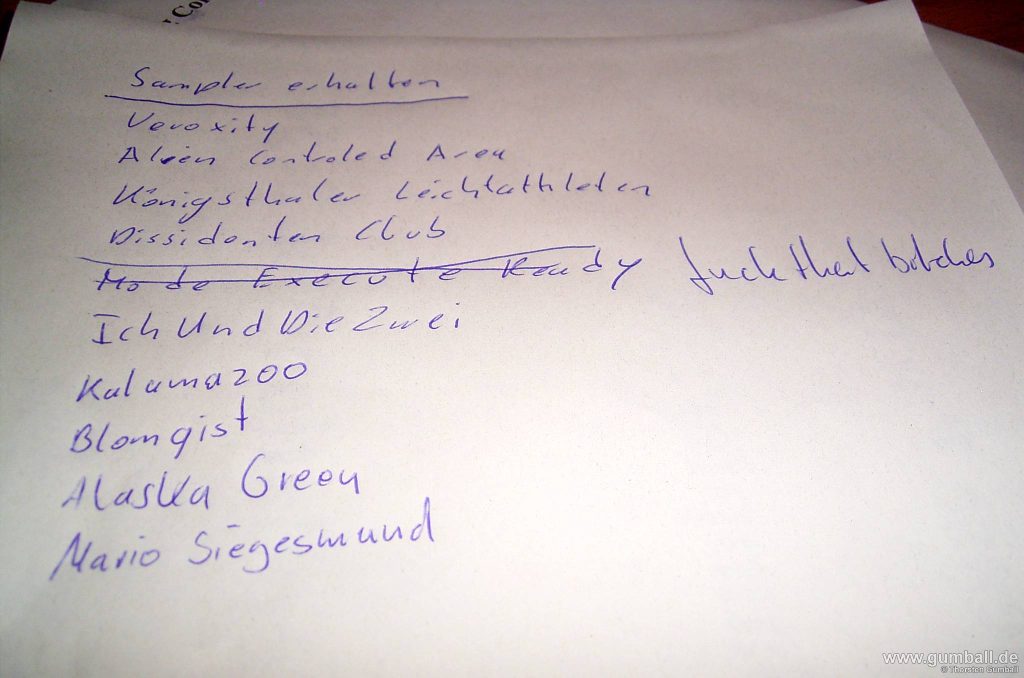 ! Co
Sampler erhalten
Veroxity
Alien Controled Area
Königsthaler Leichtathleten
Dissidenten Club
Mode Execute Ready fuck that bitches
Ich Und Die Zwei
Kalamazoo
Blomqist
Alaska Green
Mario Siegesmund
www.gumball.de
© Thorsten Gumball